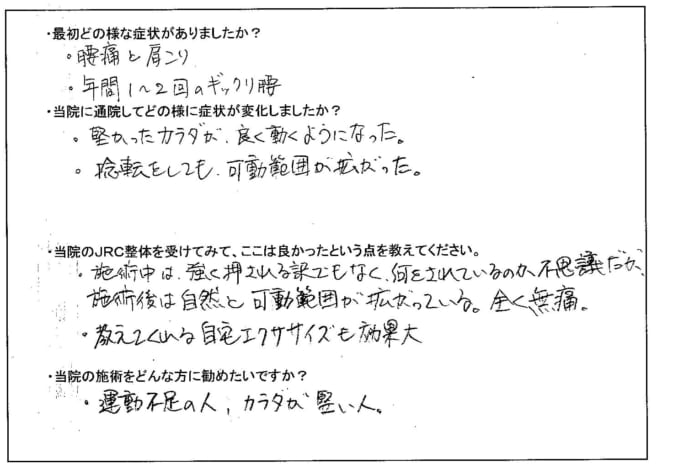 ・最初どの様な症状がありましたか？
・腰痛と肩こり
・年間1～2回のギックリ腰
・当院に通院してどの様に症状が変化しましたか？
・堅かったカラダが、良く動くようになった。
・捻転をしても、可動範囲が拡がった。
・当院のJRC整体を受けてみて、ここは良かったという点を教えてください。
・施術中は、強く押される訳でもなく、何をされているのか不思議だが、
施術後は自然と可動範囲が拡がっている。全く無痛。
・教えてくれる自宅エクササイズも効果大
・当院の施術をどんな方に勧めたいですか？
・運動不足の人、カラダが堅い人。